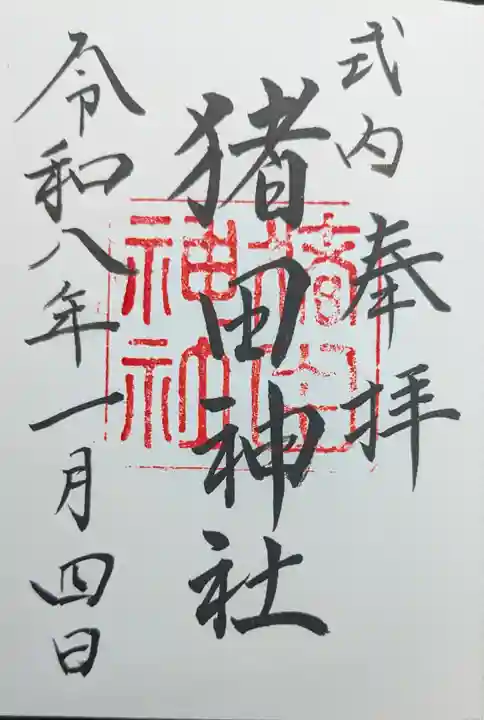 式内 奉拝
猪田神社
令和八年一月四日